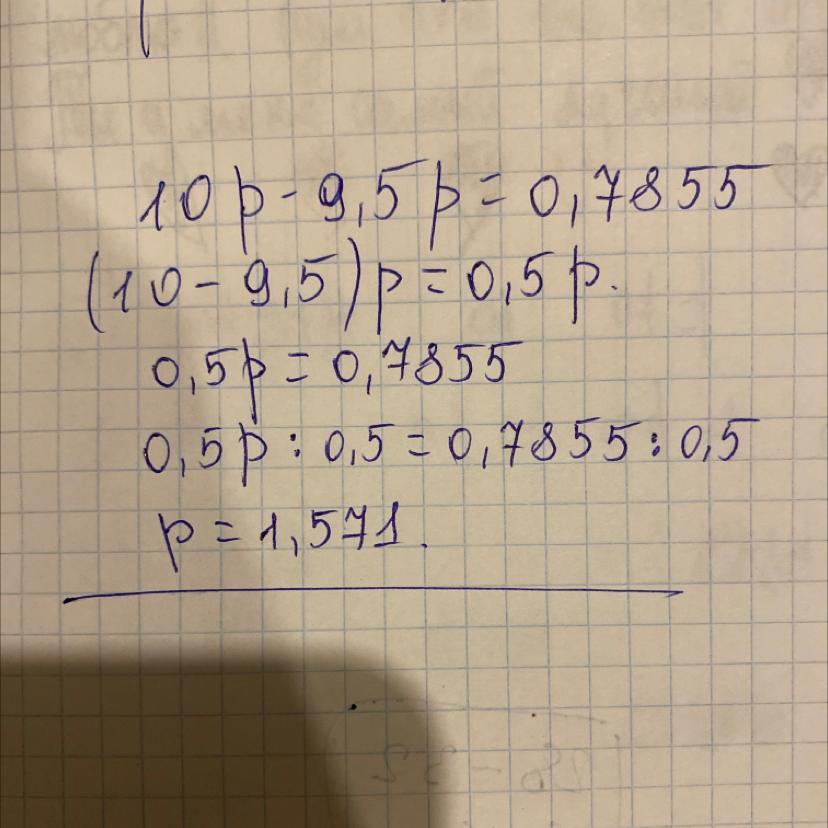 10p - 9,5p = 0,7855
(10 - 9,5)p = 0,5p.
0,5p = 0,7855
0,5p : 0,5 = 0,7855 : 0,5
p = 1,571.